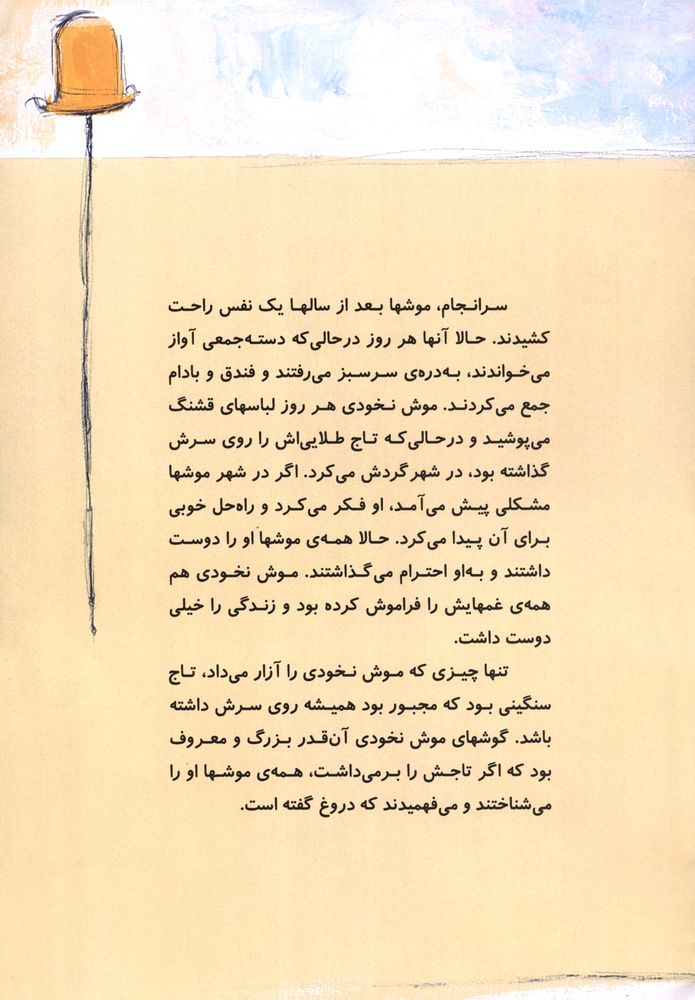 سرانجام، موشها بعد از سالها یک نفس راحت
کشیدند. حالا آنها هر روز درحالی‌که دسته‌جمعی آواز
می‌خواندند، به‌دره‌ی سرسبز می‌رفتند و فندق و بادام
جمع می‌کردند. موش نخودی هر روز لباسهای قشنگ
می‌پوشید و درحالی‌که تاج طلایی‌اش را روی سرش
گذاشته بود، در شهر گردش می‌کرد. اگر در شهر موشها
مشکلی پیش می‌آمد، او فکر می‌کرد و راه‌حل خوبی
برای آن پیدا می‌کرد. حالا همه‌ی موشها او را دوست
داشتند و به‌او احترام می‌گذاشتند. موش نخودی هم
همه‌ی غمهایش را فراموش کرده بود و زندگی را خیلی
دوست داشت.
تنها چیزی که موش نخودی را آزار می‌داد، تاج
سنگینی بود که مجبور بود همیشه روی سرش داشته
باشد. گوشهای موش نخودی آن‌قدر بزرگ و معروف
بود که اگر تاجش را برمی‌داشت، همه‌ی موشها او را
می‌شناختند و می‌فهمیدند که دروغ گفته است.